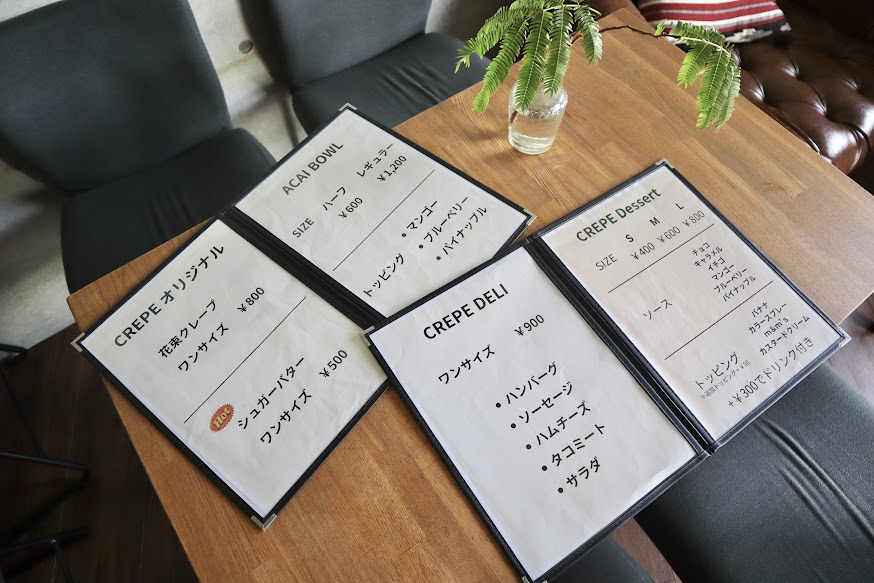 CREPE オリジナル
花束クレープ
ワンサイズ ￥800
Hot
シュガーバター
ワンサイズ ￥500
ACAI BOWL
SIZE ハーフ レギュラー
￥600 ￥1,200
トッピング
• マンゴー
• ブルーベリー
• パイナップル
CREPE DELI
ワンサイズ ￥900
• ハンバーグ
• ソーセージ
• ハムチーズ
• タコミート
• サラダ
CREPE Dessert
S M L
SIZE ￥400 ￥600 ￥800
ソース
チョコ
キャラメル
イチゴ
マンゴー
ブルーベリー
パイナップル
トッピング
バナナ
カラースプレー
m&m's
カスタードクリーム
※追加トッピング+￥50
+￥300でドリンク付き